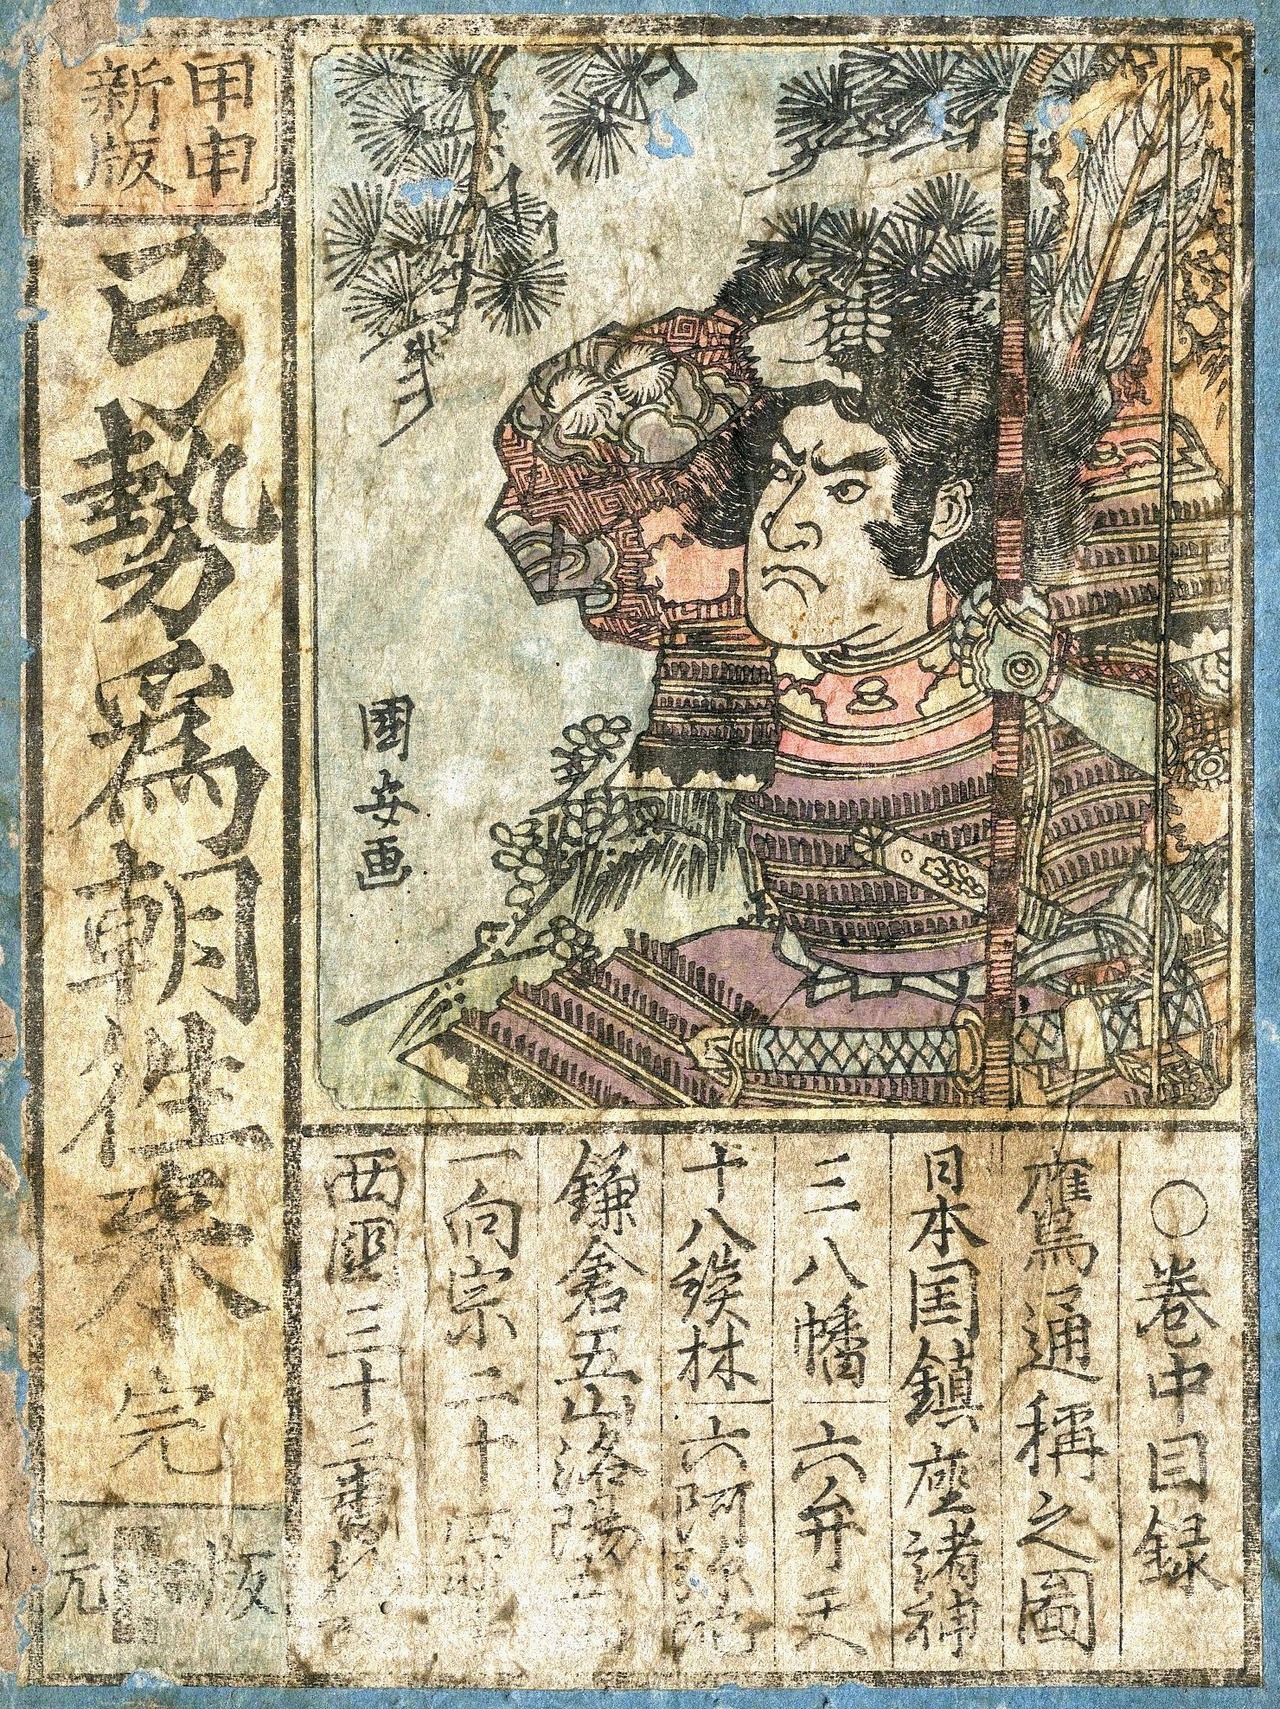 甲申
新版
弓勢爲朝往來 完
版元
國安画
○巻中目録
鷹通稱之圖
日本国鎮座諸神
三八幡 六弁天
十八檀林 六阿弥陀
鎌倉五山洛陽五山
一向宗二十四輩
西国三十三番札所